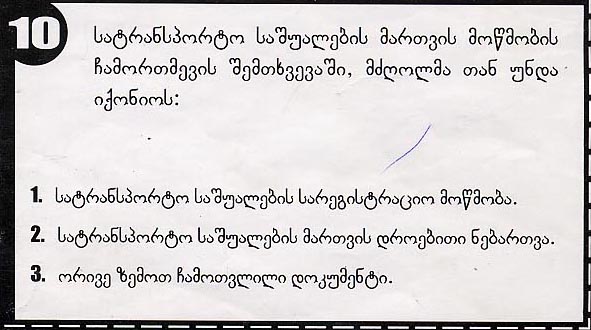 10
სატრანსპორტო საშუალების მართვის მოწმობის
ჩამორთმევის შემთხვევაში, მძღოლმა თან უნდა
იქონიოს:
1. სატრანსპორტო საშუალების სარეგისტრაციო მოწმობა.
2. სატრანსპორტო საშუალების მართვის დროებითი ნებართვა.
3. ორივე ზემოთ ჩამოთვლილი დოკუმენტი.